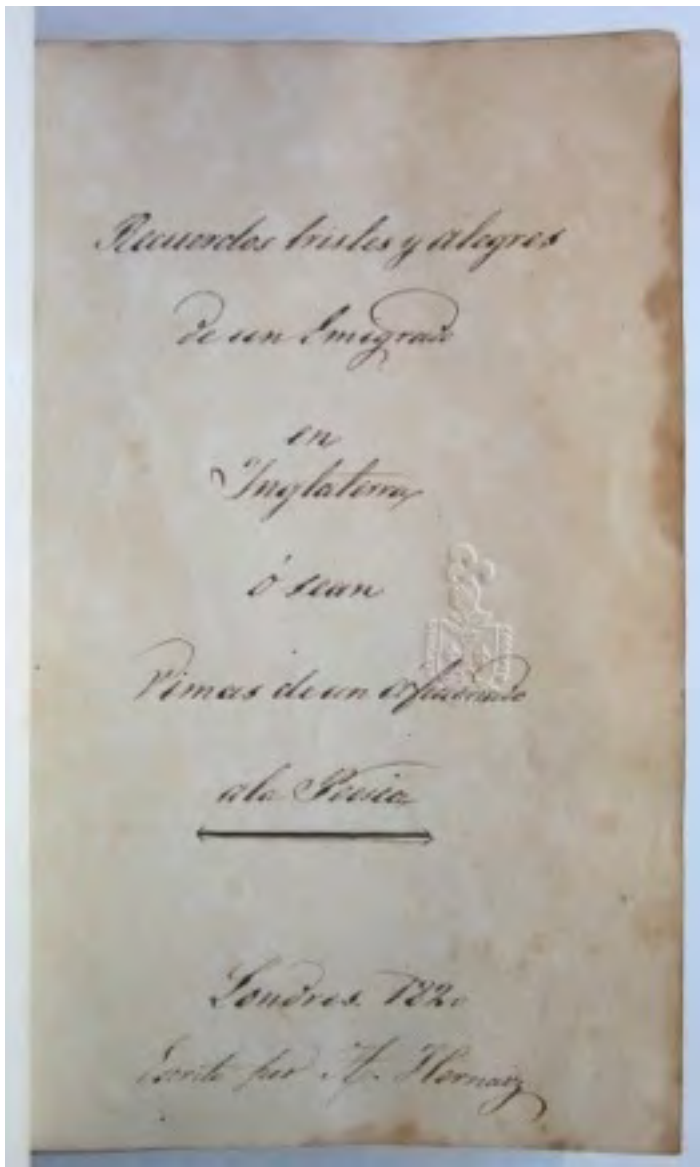 Recuerdos tristes y alegres
de un Emigrado
en
Inglaterra
ó sean
Rimas de un aficionado
a la Poesia
Londres. 182
Escrito por A. Hernaiz